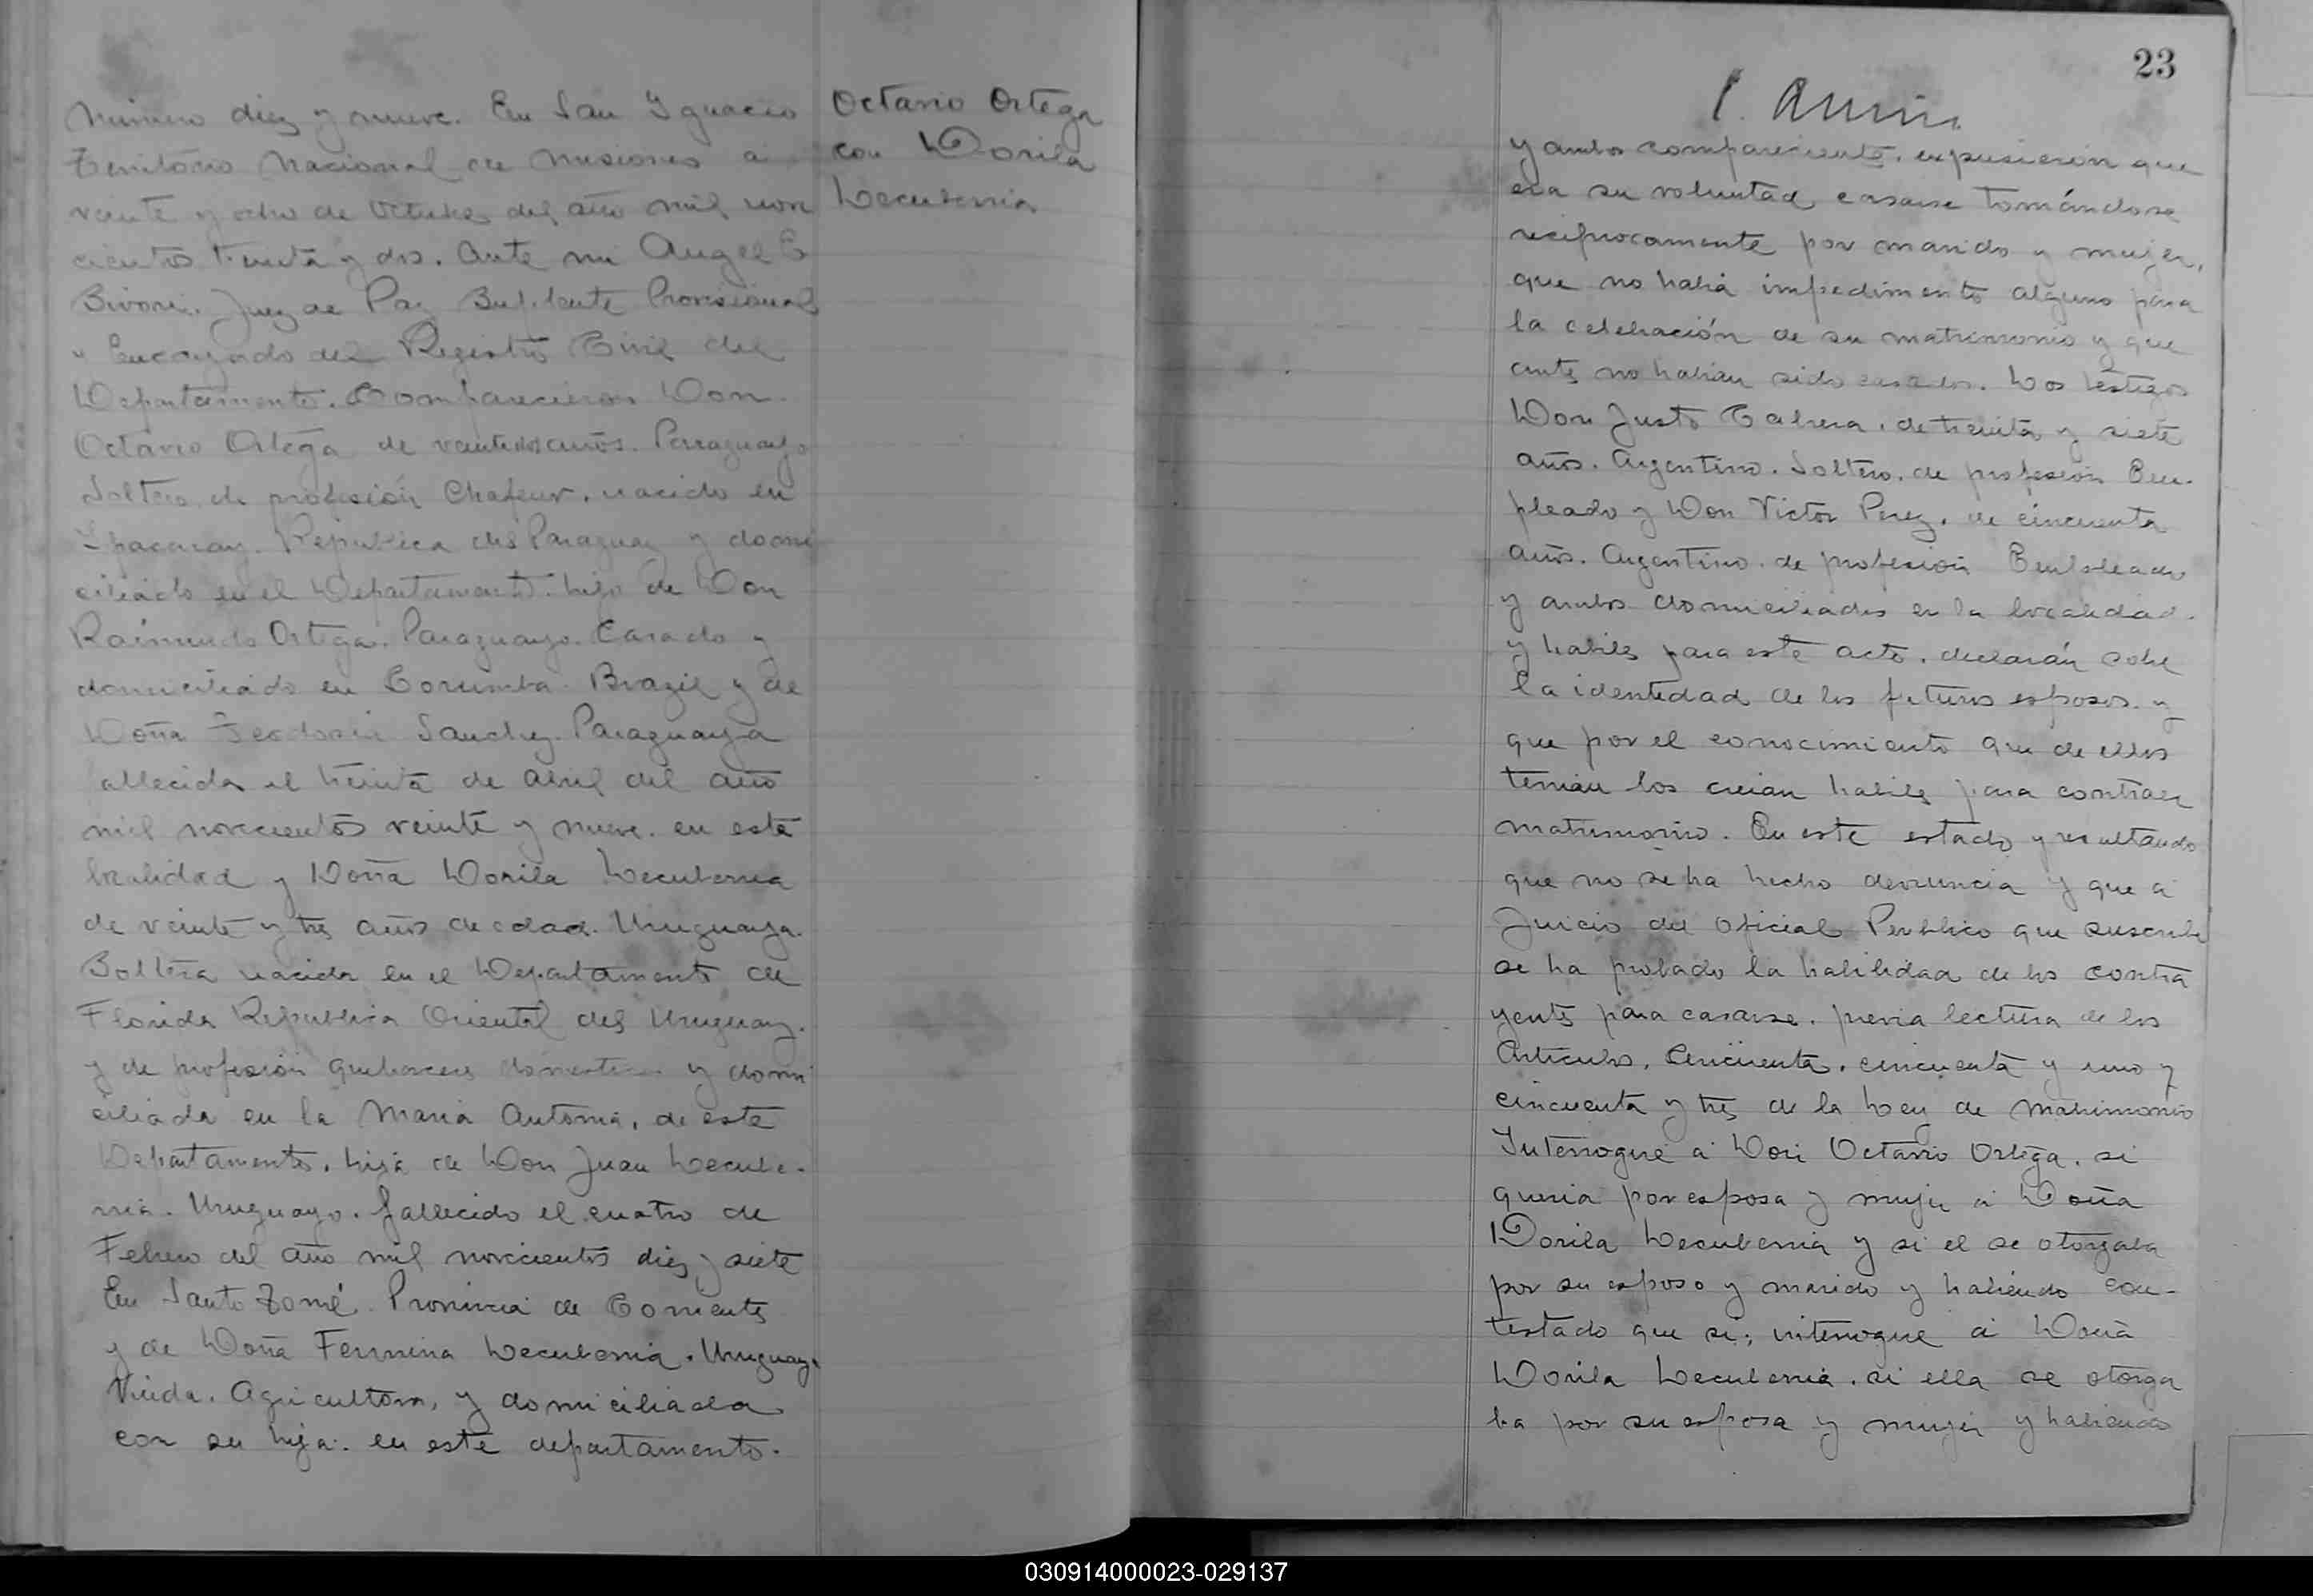 Número diez y nueve. En San Ygnacio
Territorio Nacional de Misiones a
veinte y ocho de Octubre del año mil nove
cientos treinta y dos. Ante mi Angel E
Juez de Paz Suplente Provisional
y Encargado del Registro Civil del
Departamento. Comparecieron Don
Octavio Ortega de veintidos años. Paraguayo
Soltero de profesión Chafeur. nacido en
Republica del Paraguay y domi
ciliado en el Departamento. hijo de Don
Raimundo Ortega. Paraguayo. Casado y
domiciliado en Corumba Brazil y de
Doña Sanchez. Paraguaya
fallecida el treinta de abril del año
mil novecientos veinte y nueve. en esta
localidad y Doña Dorila Lecuberria
de veinte y tres años de edad. Uruguaya.
Soltera nacida en el Departamento de
Florida Republica Oriental del Uruguay.
y de profesión quehaceres domesticos y domi
ciliada en la Maria Antonia, de este
Departamento. hija de Don Juan Lecube-
rria. Uruguayo. fallecido el cuatro de
Febrero del año mil novecientos diez y siete
En Santo Tomé. Provincia de Corrientes
y de Doña Fermina Lecuberria. Uruguaya
Viuda. Agricultora, y domiciliada
con su hija. en este departamento.
Octavio Ortega
con Dorila
Lecuberria
23
y ambos comparecientes. expusierón que
era su voluntad casarse tomándose
reciprocamente por marido y mujer,
que no habia impedimento alguno para
la celebración de su matrimonio y que
antes no habian sido casados. Los testigos
Don Justo Cabrera. de treinta y siete
años. Argentino. Soltero. de profesión Em-
pleado y Don Victor Perez. de cincuenta
años. Argentino. de profesión Empleado
y ambos domiciliados en la localidad.
y habiles para este acto. declarán sobre
la identidad de los futuros esposos. y
que por el conocimiento que de ellos
tenian los creian habiles para contraer
matrimonio. En este estado y resultando
que no se ha hecho denuncia y que a
Juicio del Oficial Publico que suscribe
se ha probado la habilidad de los contra
yentes para casarse. previa lectura de los
Articulos. Cincuenta. cincuenta y uno y
cincuenta y tres de la Ley de Matrimonio
Interrogué a Don Octavio Ortega. si
queria por esposa y mujer a Doña
Dorila Lecuberria y si el se otorgaba
por su esposo y marido y habiendo con-
testado que si; interrogue a Doña
Dorila Lecuberria. si ella se otorga
ba por su esposa y mujer y habiendo
030914000023-029137